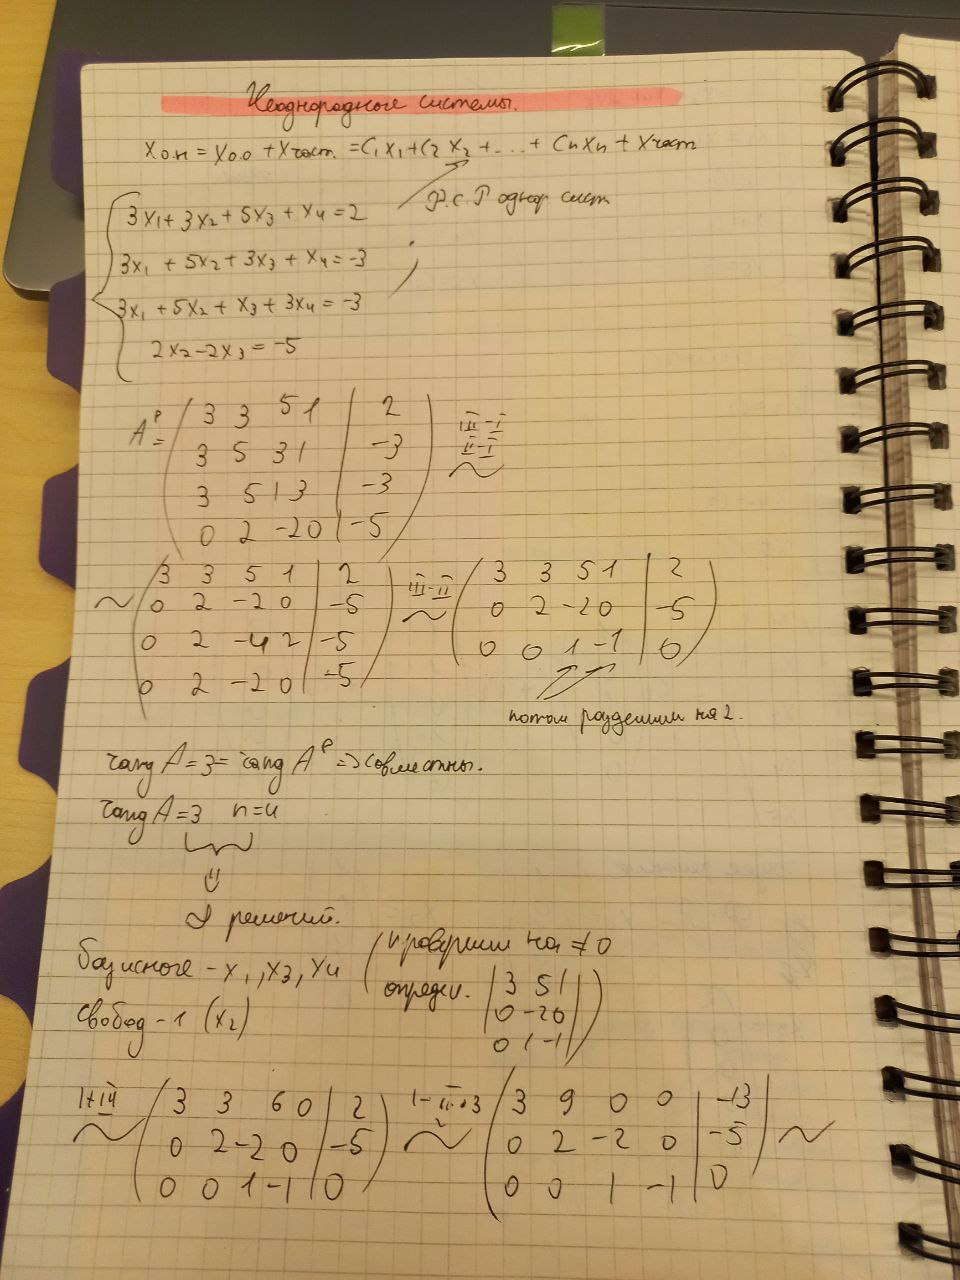 Неоднородные системы.
Xо.н = Xо.о + Xчаст. = C₁X₁ + C₂X₂ + ... + CₙXₙ + Xчаст
Ф.С.Р однор сист
3x₁ + 3x₂ + 5x₃ + x₄ = 2
3x₁ + 5x₂ + 3x₃ + x₄ = -3
3x₁ + 5x₂ + x₃ + 3x₄ = -3
2x₂ - 2x₃ = -5
Aᴾ =
3 3 5 1 | 2
3 5 3 1 | -3
3 5 1 3 | -3
0 2 -2 0 | -5
III - I
II - I
~
~
3 3 5 1 | 2
0 2 -2 0 | -5
0 2 -4 2 | -5
0 2 -2 0 | -5
III - II
~
3 3 5 1 | 2
0 2 -2 0 | -5
0 0 1 -1 | 0
потом разделили на 2.
rang A = 3 = rang Aᴾ => совместны.
rang A = 3 n = 4
решений.
базисные - x₁, x₃, x₄
свобод - 1 (x₂)
(проверим на ≠ 0
опред.
3 5 1
0 -2 0
0 1 -1
)
~
3 3 6 0 | 2
0 2 -2 0 | -5
0 0 1 -1 | 0
I - II·3
~
3 9 0 0 | -13
0 2 -2 0 | -5
0 0 1 -1 | 0
~